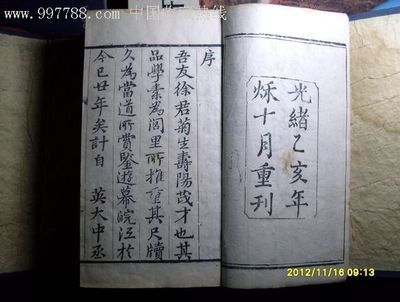 www.997788.com 中国收藏热线
光緒乙亥年
烁十月重刊
序
吾友徐君菊生壽陽茂才也其
品學素為閭里所推重其尺牘
久為當道所賞鑒遊幕皖江於
今已廿年矣計自 英大中丞
2012/11/16 09:13